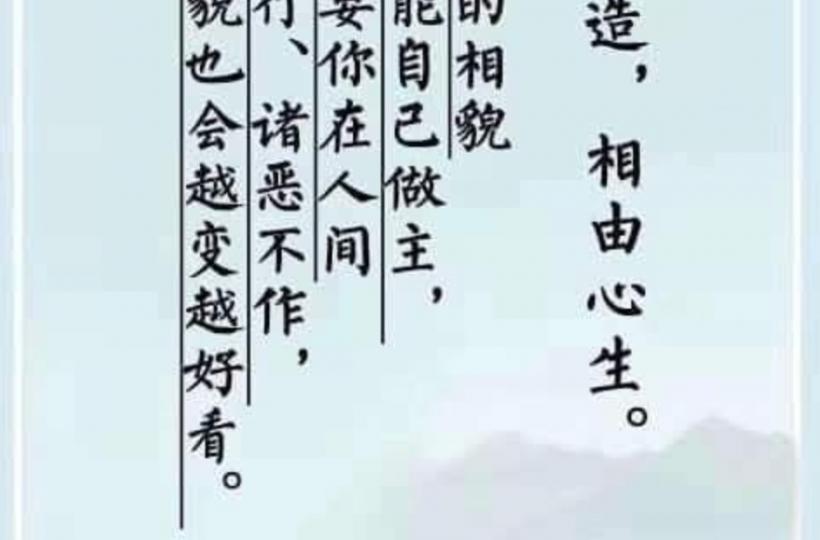 造，相由心生。
的相貌
能自己做主，
要你在人间
行、诸恶不作，
貌也会越变越好看。